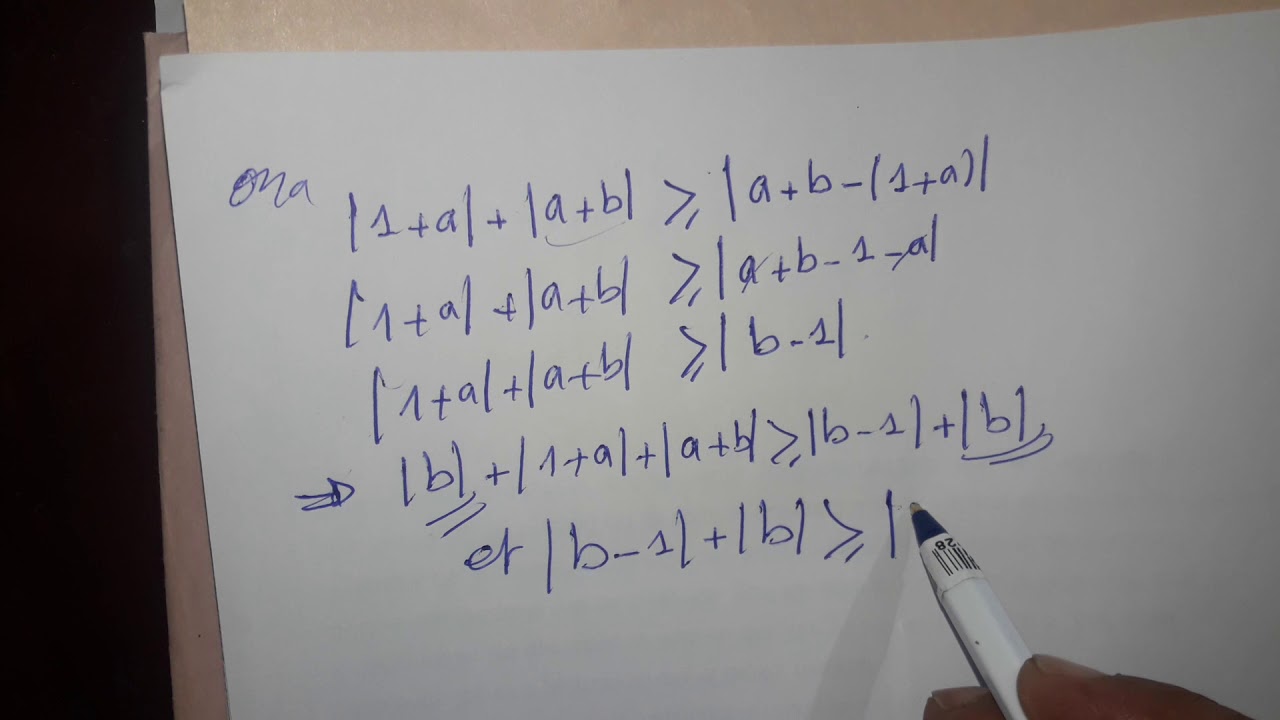 on a |1+a|+|a+b| ⩾ |a+b-(1+a)|
|1+a|+|a+b| ⩾ |a+b-1-a|
|1+a|+|a+b| ⩾ |b-1|.
⇒ |b|+|1+a|+|a+b| ⩾ |b-1|+|b|,
et |b-1|+|b| ⩾ |
28